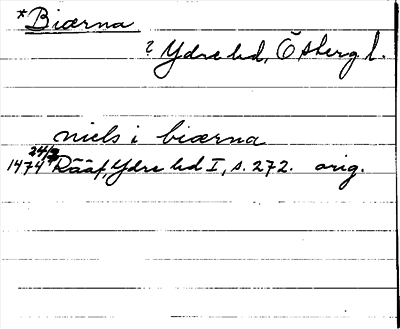 *Biærna
? Ydre hd, Östberg l.
niels i biærna
1474 24/3 Rääf, Ydre hd I, s. 272. orig.